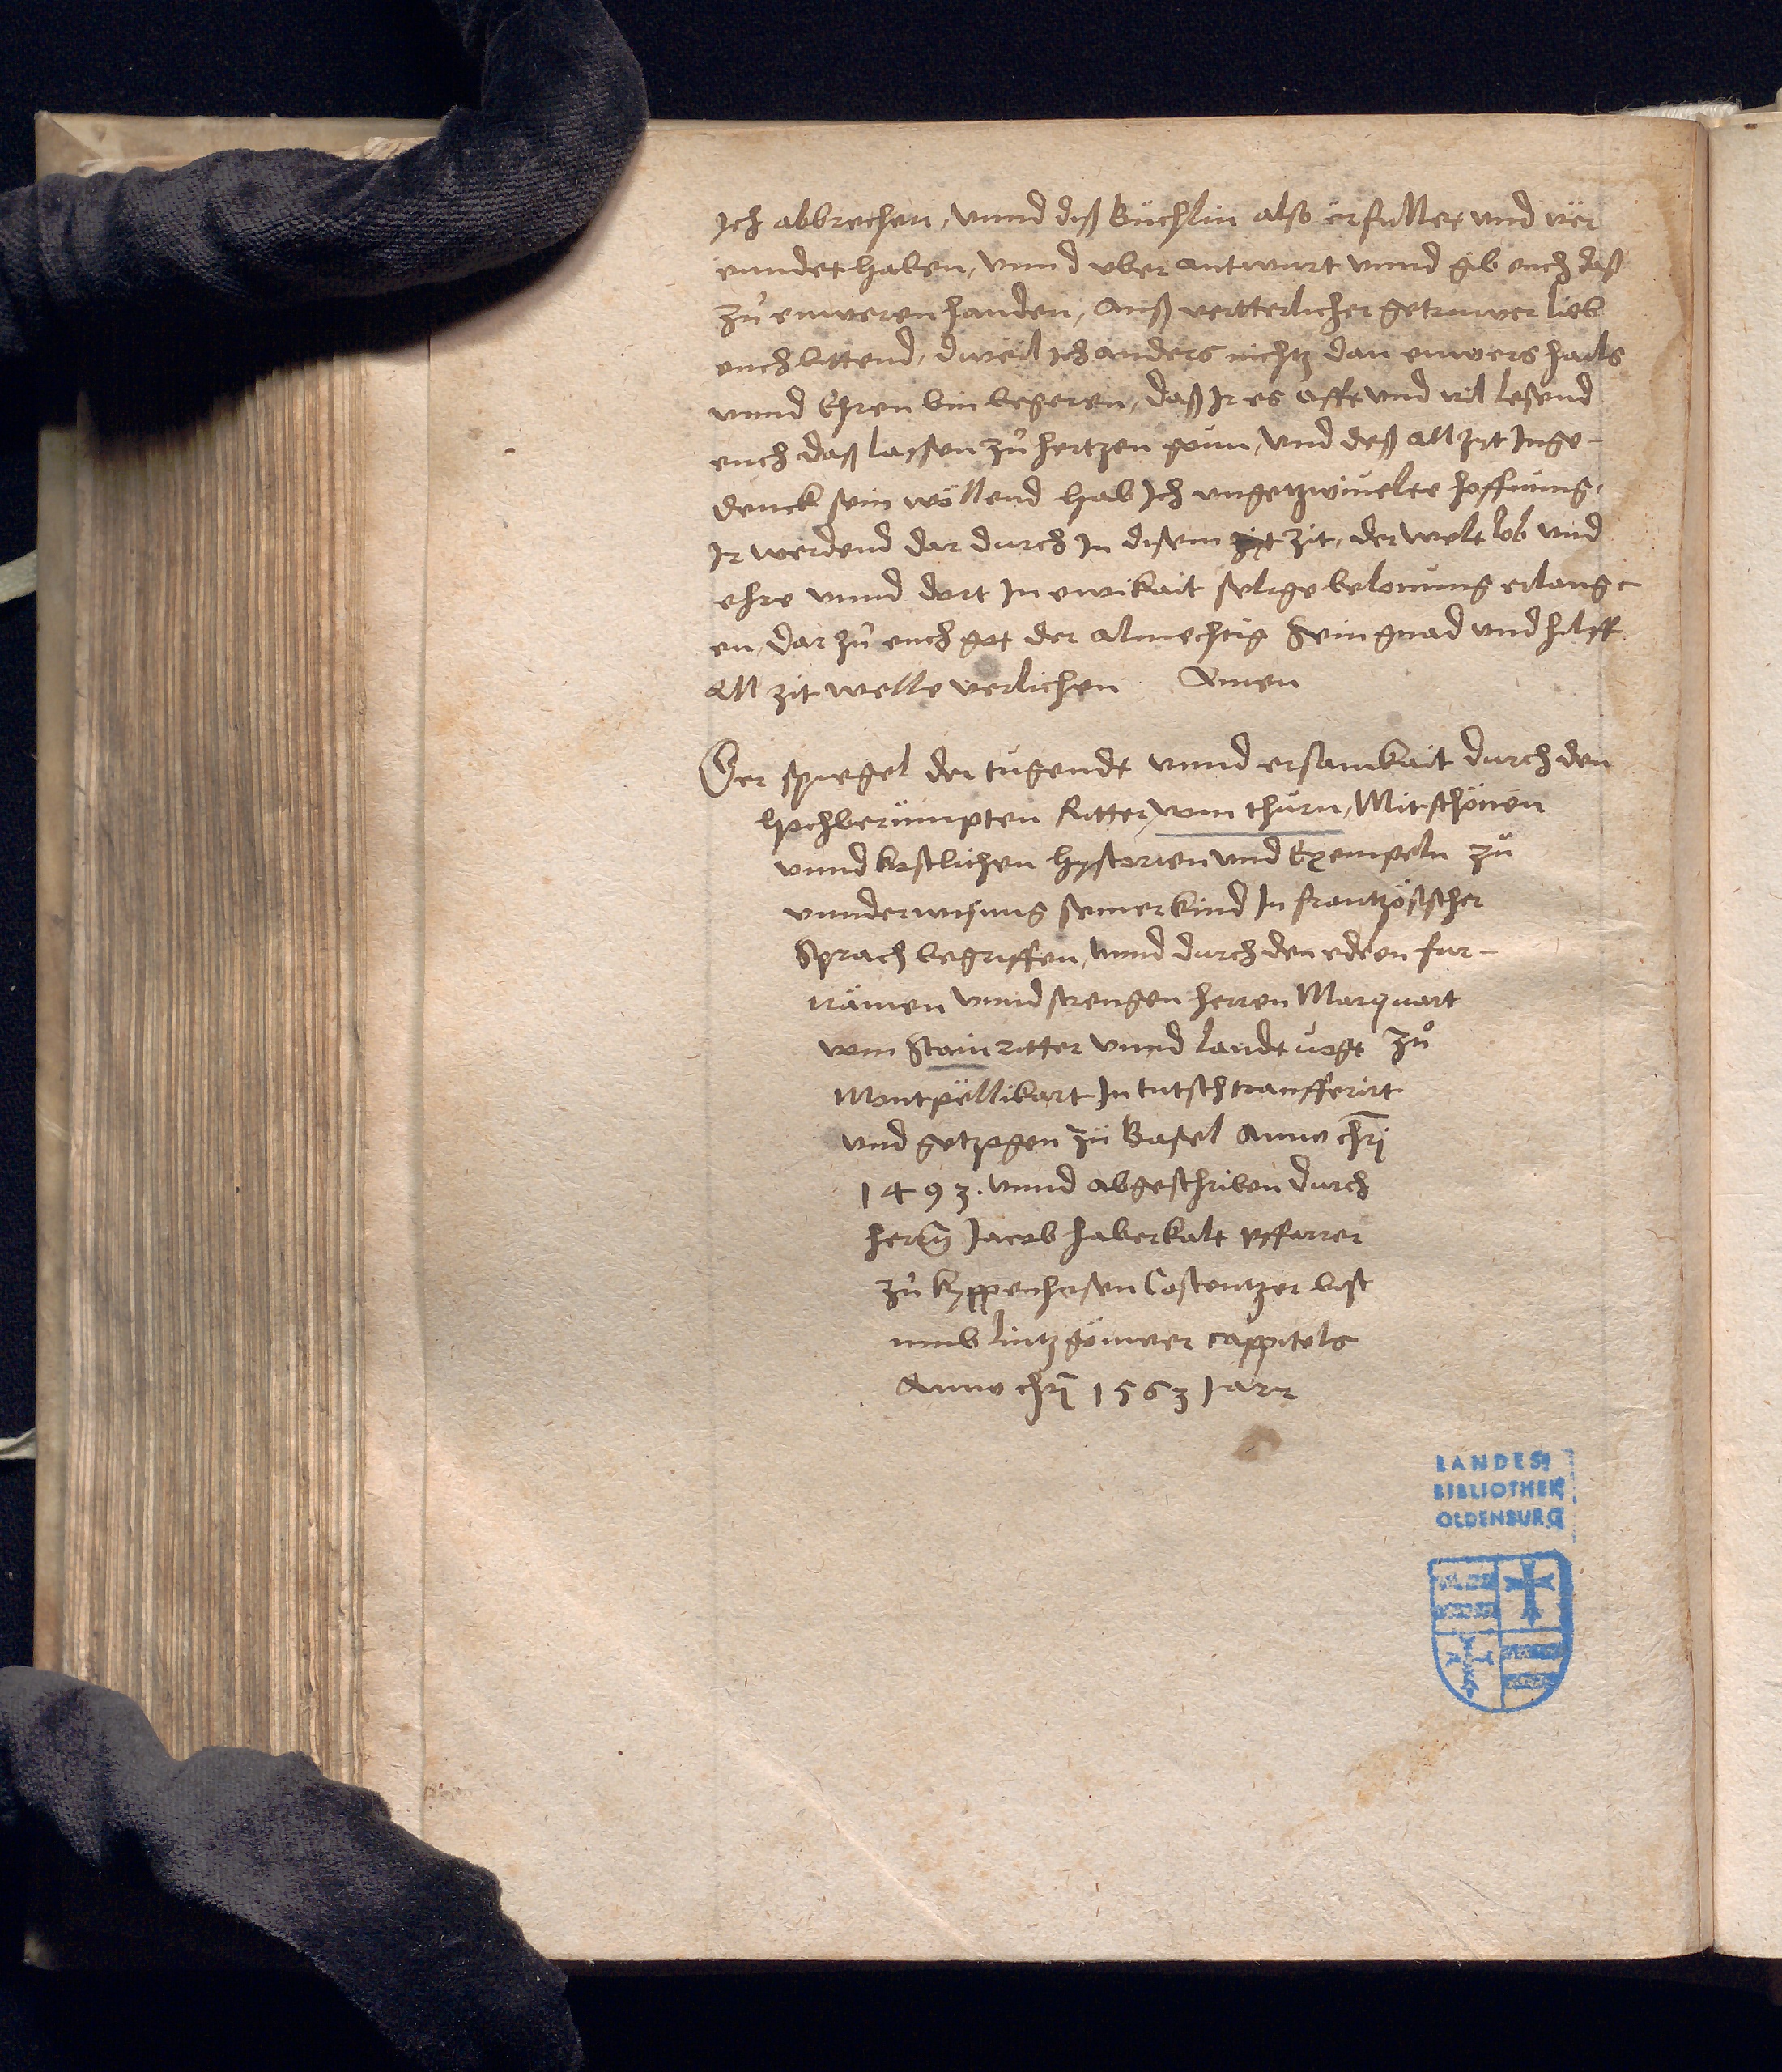 Ich abbrechen, vnnd diß Büchlin also erfullet vnd ver
enndet haben, vnnd vber antwurt vnnd gib euch daß
zů euweren handen, Auß vetterlicher getruwer lieb
euch bittend, dweil ich anders nichtz dan euwers hails
vnnd Ehren bin begeren, daß Ir es offt vnd vil lesend
euch daß lassen zů hertzen gonn, vnd deß all zit Inge-
denck sein wöllend hab Ich vngetzwiuelte hoffnung,
Ir werdend dar durch In disem zit, der welt lob vnd
ehre vnnd dort In ewikait selige belonung erlang-
en, dar zů euch got der almechtig Sein gnad vnd hilff
All zit welle verlichen Amen
Der spiegel der tugendt vnnd ersamkait durch den
hochberümpten Ritter vom thurn, Mit schönen
vnnd kostlichen hystorien vnd Exempeln zů
vnnderwisung seiner kind In frantzösischer
Sprach begriffen, vnnd durch den edlen fur-
nämen vnnd strengen herren Marquart
vom Stain ritter vnnd landtuogt zů
Montpellikart In tutsch transferirt
vnd getzogen zů Basel Anno chri
1493. vnnd abgeschriben durch
herrn Jacob haberkalt pffarrer
zů kyppenhusen Costentzer bist
umb lintzgöuwer cappitels
Anno chri 1563 Jarr
LANDES-
BIBLIOTHEK
OLDENBURG